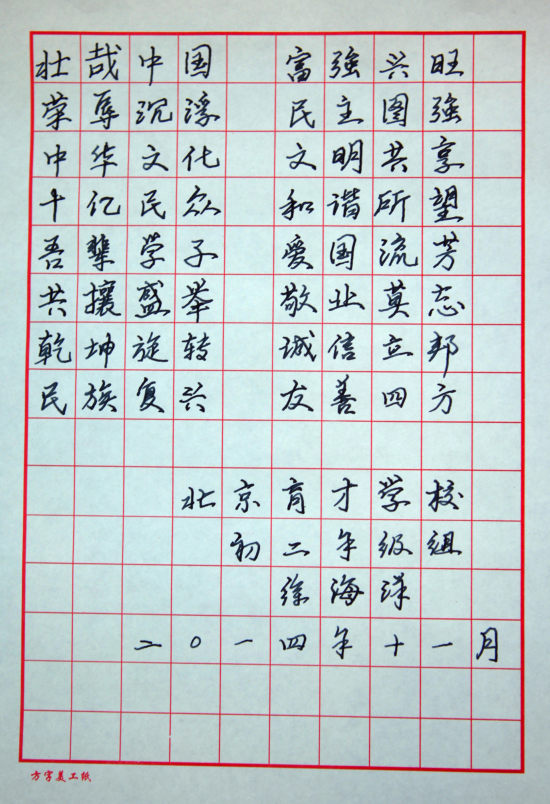 壮哉中国 富强兴旺
荣辱沉浮 民主图强
中华文化 文明共享
十亿民众 和谐所望
吾辈学子 爱国流芳
共攘盛举 敬业莫忘
乾坤旋转 诚信立邦
民族复兴 友善四方
北京育才学校
初二年级组
徐海洋
二〇一四年十一月
方字美工纸